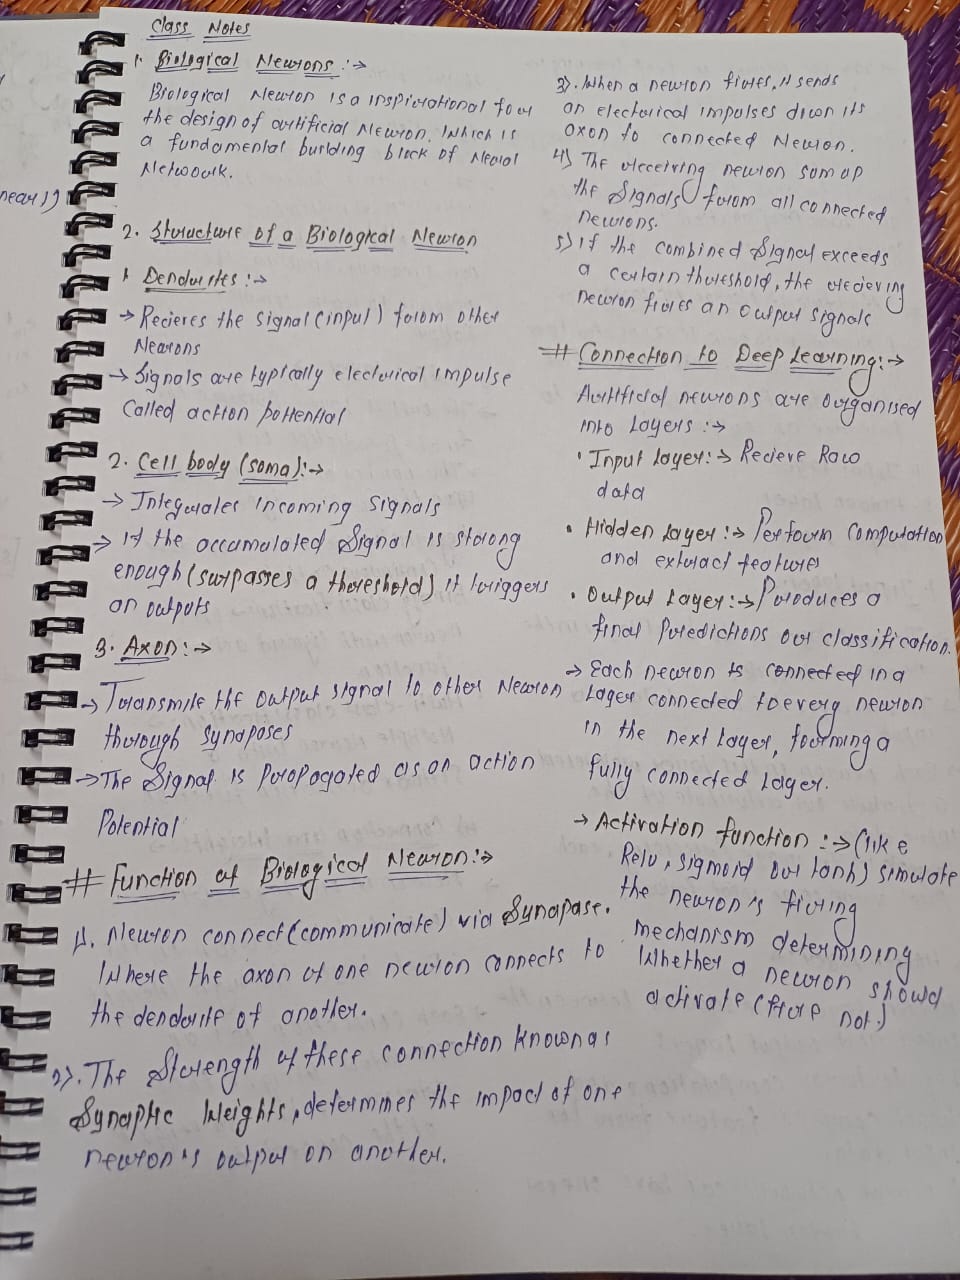 Class Notes
1. Biological Neurons :→
Biological Neuron is a inspirational for
the design of artificial Neuron. Which is
a fundamental building block of Neural
Network.
2. Structure of a Biological Neuron
1. Dendrites :→
→ Recieves the signal (input) from other
Neurons
→ Signals are typically electrical impulse
Called action pottential
2. Cell body (soma) :→
→ Integrates Incoming Signals
→ If the accumulated Signal is strong
enough (surpasses a thereshold) it triggers
an outputs
3. Axon :→
→ Transmits the output signal to other Neuron
through synapses
→ The Signal is Propogated as an action
Potential
# Function of Biological Neuron :→
1). Neuron connect (communicate) via Synapase.
Where the axon of one neuron connects to
the dendrite of another.
2). The Strength of these connection known as
Synaptic Weights, determines the impact of one
neuron's output on another.
3). When a neuron fires, it sends
an electrical impulses down its
axon to connected Neuron.
4) The receiving neuron sum up
the Signals from all connected
neurons.
5) If the combined Signal exceeds
a certain threshold, the recieving
neuron fires an output signals
# Connection to Deep Learning :→
Artificial neurons are organised
into Layers :→
• Input Layer :→ Recieve Raw
data
• Hidden Layer :→ Perform Computation
and extract features
• Output Layer :→ Produces a
final Predictions or classification.
→ Each neuron is connected in a
Layer connected to every neuron
in the next Layer, forming a
fully connected Layer.
→ Activation function :→ (like
Relu, sigmoid or tanh) simulate
the neuron's firing
mechanism determining
Whether a neuron should
activate (fire not.)